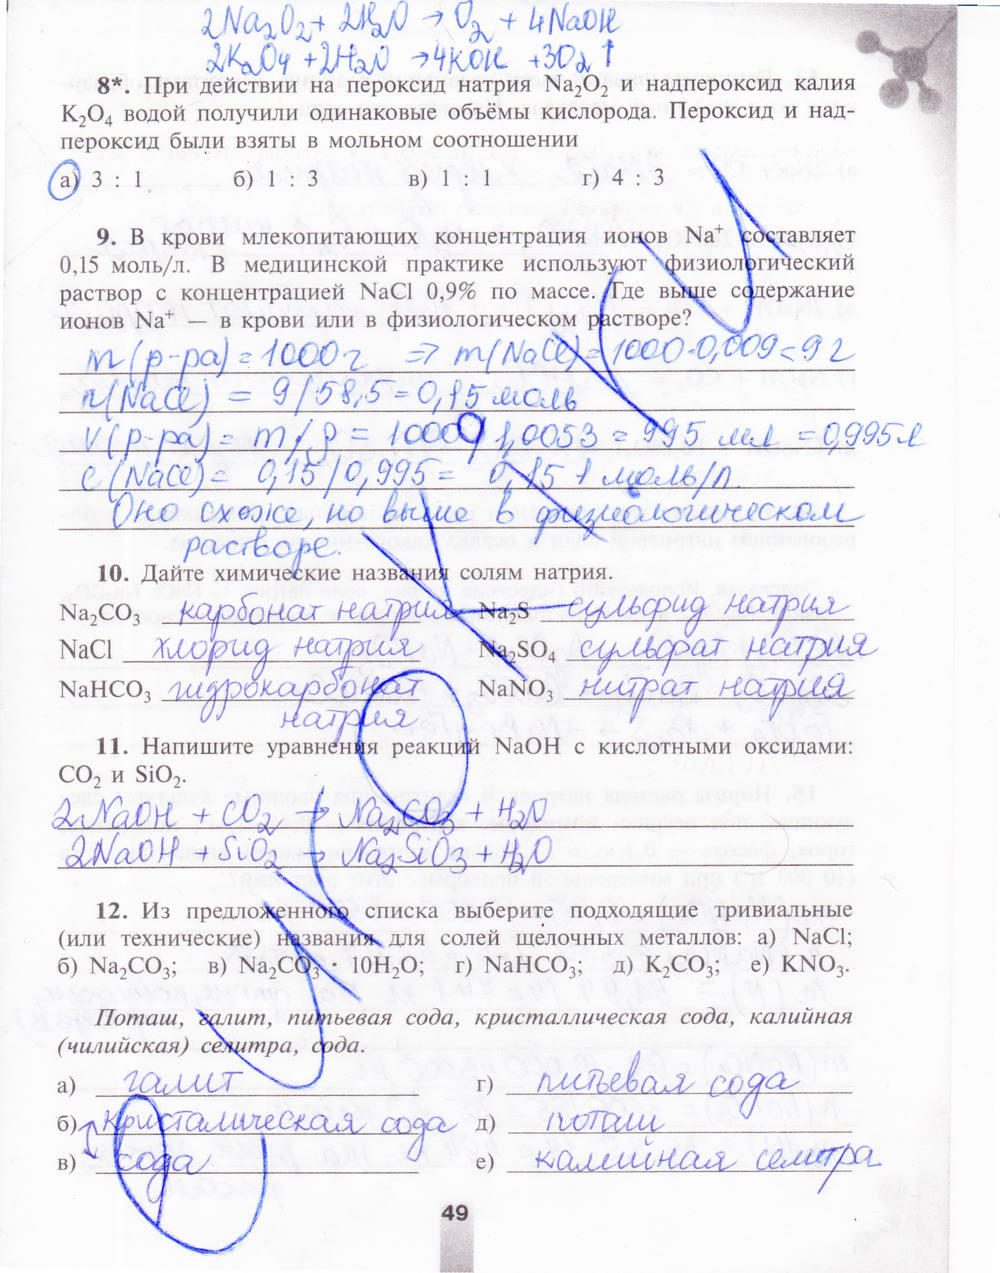 2Na₂O₂ + 2H₂O → O₂ + 4NaOH
2K₂O₄ + 2H₂O → 4KOH + 3O₂↑
8*. При действии на пероксид натрия Na₂O₂ и надпероксид калия
K₂O₄ водой получили одинаковые объёмы кислорода. Пероксид и над-
пероксид были взяты в мольном соотношении
а) 3 : 1 б) 1 : 3 в) 1 : 1 г) 4 : 3
9. В крови млекопитающих концентрация ионов Na⁺ составляет
0,15 моль/л. В медицинской практике используют физиологический
раствор с концентрацией NaCl 0,9% по массе. Где выше содержание
ионов Na⁺ — в крови или в физиологическом растворе?
m(р-ра) = 1000 г ⇒ m(NaCl) = 1000·0,009 = 9 г
n(NaCl) = 9/58,5 = 0,15 моль
V(р-ра) = m/ρ = 1000/1,0053 = 995 мл = 0,995 л
c(NaCl) = 0,15/0,995 = 0,151 моль/л.
Оно схоже, но выше в физиологическом
растворе.
10. Дайте химические названия солям натрия.
Na₂CO₃ карбонат натрия Na₂S сульфид натрия
NaCl хлорид натрия Na₂SO₄ сульфат натрия
NaHCO₃ гидрокарбонат NaNO₃ нитрат натрия
натрия
11. Напишите уравнения реакций NaOH с кислотными оксидами:
CO₂ и SiO₂.
2NaOH + CO₂ → Na₂CO₃ + H₂O
2NaOH + SiO₂ → Na₂SiO₃ + H₂O
12. Из предложенного списка выберите подходящие тривиальные
(или технические) названия для солей щелочных металлов: а) NaCl;
б) Na₂CO₃; в) Na₂CO₃ · 10H₂O; г) NaHCO₃; д) K₂CO₃; е) KNO₃.
Поташ, галит, питьевая сода, кристаллическая сода, калийная
(чилийская) селитра, сода.
а) галит г) питьевая сода
б) кристалическая сода д) поташ
в) сода е) калийная селитра
49